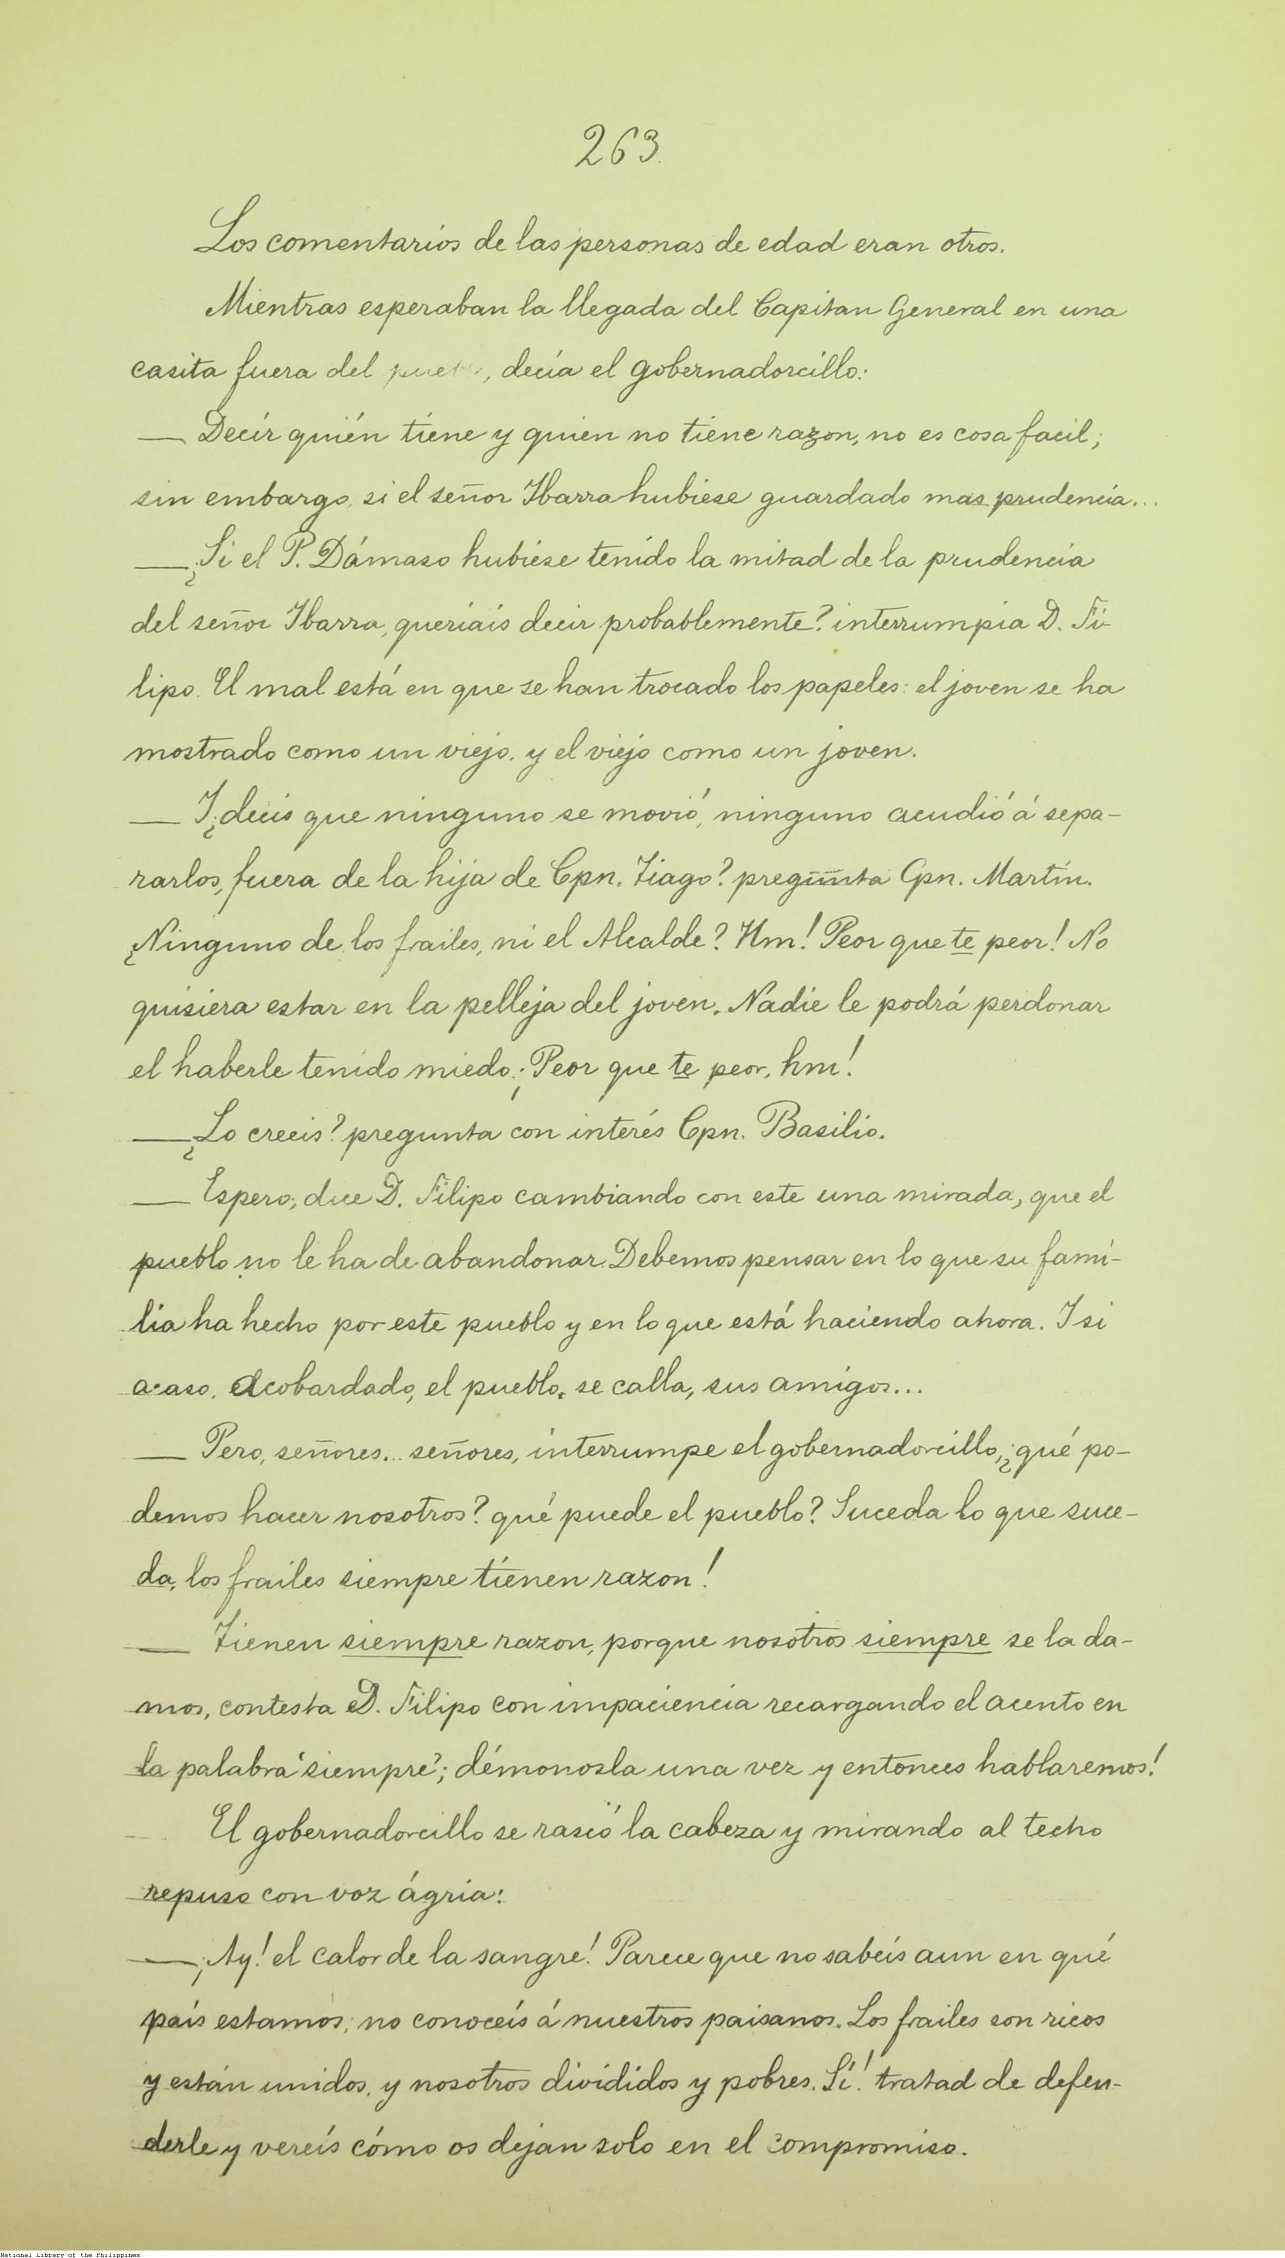 263.
Los comentarios de las personas de edad eran otros.
Mientras esperaban la llegada del Capitan General en una
casita fuera del , decía el gobernadorcillo:
— Decir quién tiene y quien no tiene razon, no es cosa facil;
sin embargo, si el señor Ibarra hubiese guardado mas prudencia...
— ¿Si el P. Dámaso hubiese tenido la mitad de la prudencia
del señor Ibarra, queriais decir probablemente? interrumpia D. Fi-
lipo. El mal está en que se han trocado los papeles: el joven se ha
mostrado como un viejo. y el viejo como un joven.
— I ¿decis que ninguno se movió, ninguno acudió á sepa-
rarlos, fuera de la hija de Cpn. Tiago? pregunta Cpn. Martin.
¿Ninguno de los frailes, ni el Alcalde? Hm! Peor que te peor! No
quisiera estar en la pelleja del joven. Nadie le podrá perdonar
el haberle tenido miedo. ¡Peor que te peor, hm!
— ¿Lo creeis? pregunta con interés Cpn. Basilio.
— Espero, dice D. Filipo cambiando con este una mirada, que el
pueblo no le ha de abandonar. Debemos pensar en lo que su fami-
lia ha hecho por este pueblo y en lo que está haciendo ahora. I si
acaso, acobardado, el pueblo, se calla, sus amigos...
— Pero, señores... señores, interrumpe el gobernadorcillo, ¿qué po-
demos hacer nosotros? qué puede el pueblo? Suceda lo que suce-
da, los frailes siempre tienen razon!
— Tienen siempre razon, porque nosotros siempre se la da-
mos, contesta D. Filipo con impaciencia recargando el acento en
la palabra "siempre"; démonosla una vez y entonces hablaremos!
El gobernadorcillo se rascó la cabeza y mirando al techo
repuso con voz ágria:
— ¡Ay! el calor de la sangre! Parece que no sabeis aun en qué
país estamos; no conoceis á nuestros paisanos. Los frailes son ricos
y están unidos, y nosotros divididos y pobres. Sí! tratad de defen-
derle y vereis cómo os dejan solo en el compromiso.
National Library of the Philippines